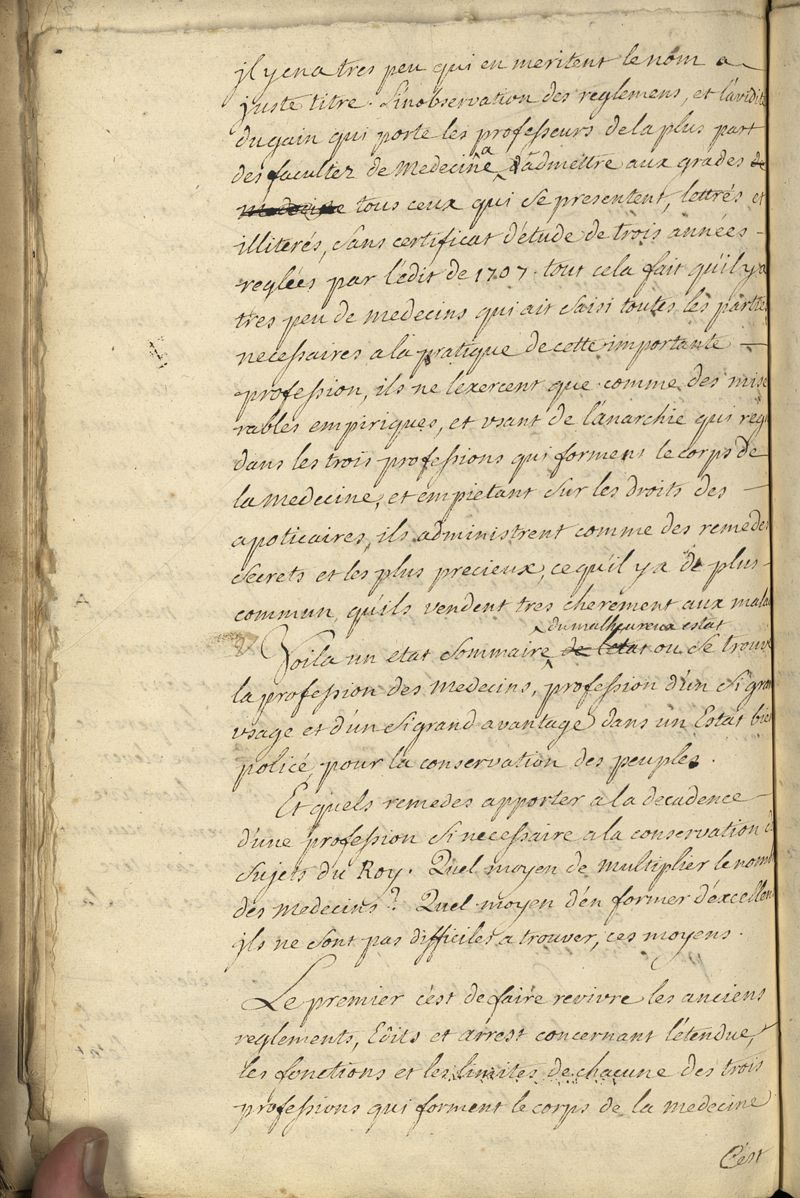 jl y en a tres peu qui en meritent le nom a
juste titre. Linobservation des reglemens, et l'avidité
du gain qui porte les professeurs de la plus part
des facultez de Medecine a d'admettre aux grades de
medecine tous ceux qui se presentent, lettrés et
illiterés, sans certificat d'étude de trois années
reglées par l'édit de 1707. tout cela fait qu'il y a
tres peu de medecins qui ait saisi toutes les parties
necessaires a la pratique de cette importante
profession, ils ne l'exercent que comme des mise
rables empiriques, et usant de l'anarchie qui reg
dans les trois professions qui forment le corps de
la medecine, et empietant sur les droits des
apoticaires, ils administrent comme des remedes
secrets et les plus precieux, ce qu'il y a de plus
commun, qu'ils vendent tres cherement aux mala
du malheureux estat
Voila un etat sommaire de l'etat ou se trouve
la profession des medecins, profession d'un si gran
usage et d'un si grand avantage dans un Estat bien
policé, pour la conservation des peuples.
Et quels remedes apporter a la decadence
d'une profession si necessaire a la conservation
sujets du Roy. Quel moyen de multiplier le nomb
des medecins? Quel moyen d'en former d'excellen
jls ne sont pas difficiles a trouver, ces moyens.
Le premier c'est de faire revivre les anciens
reglements, Edits et arrest concernant l'étendue,
les fonctions et les limites de chacune des trois
professions qui forment le corps de la medecine
C'est